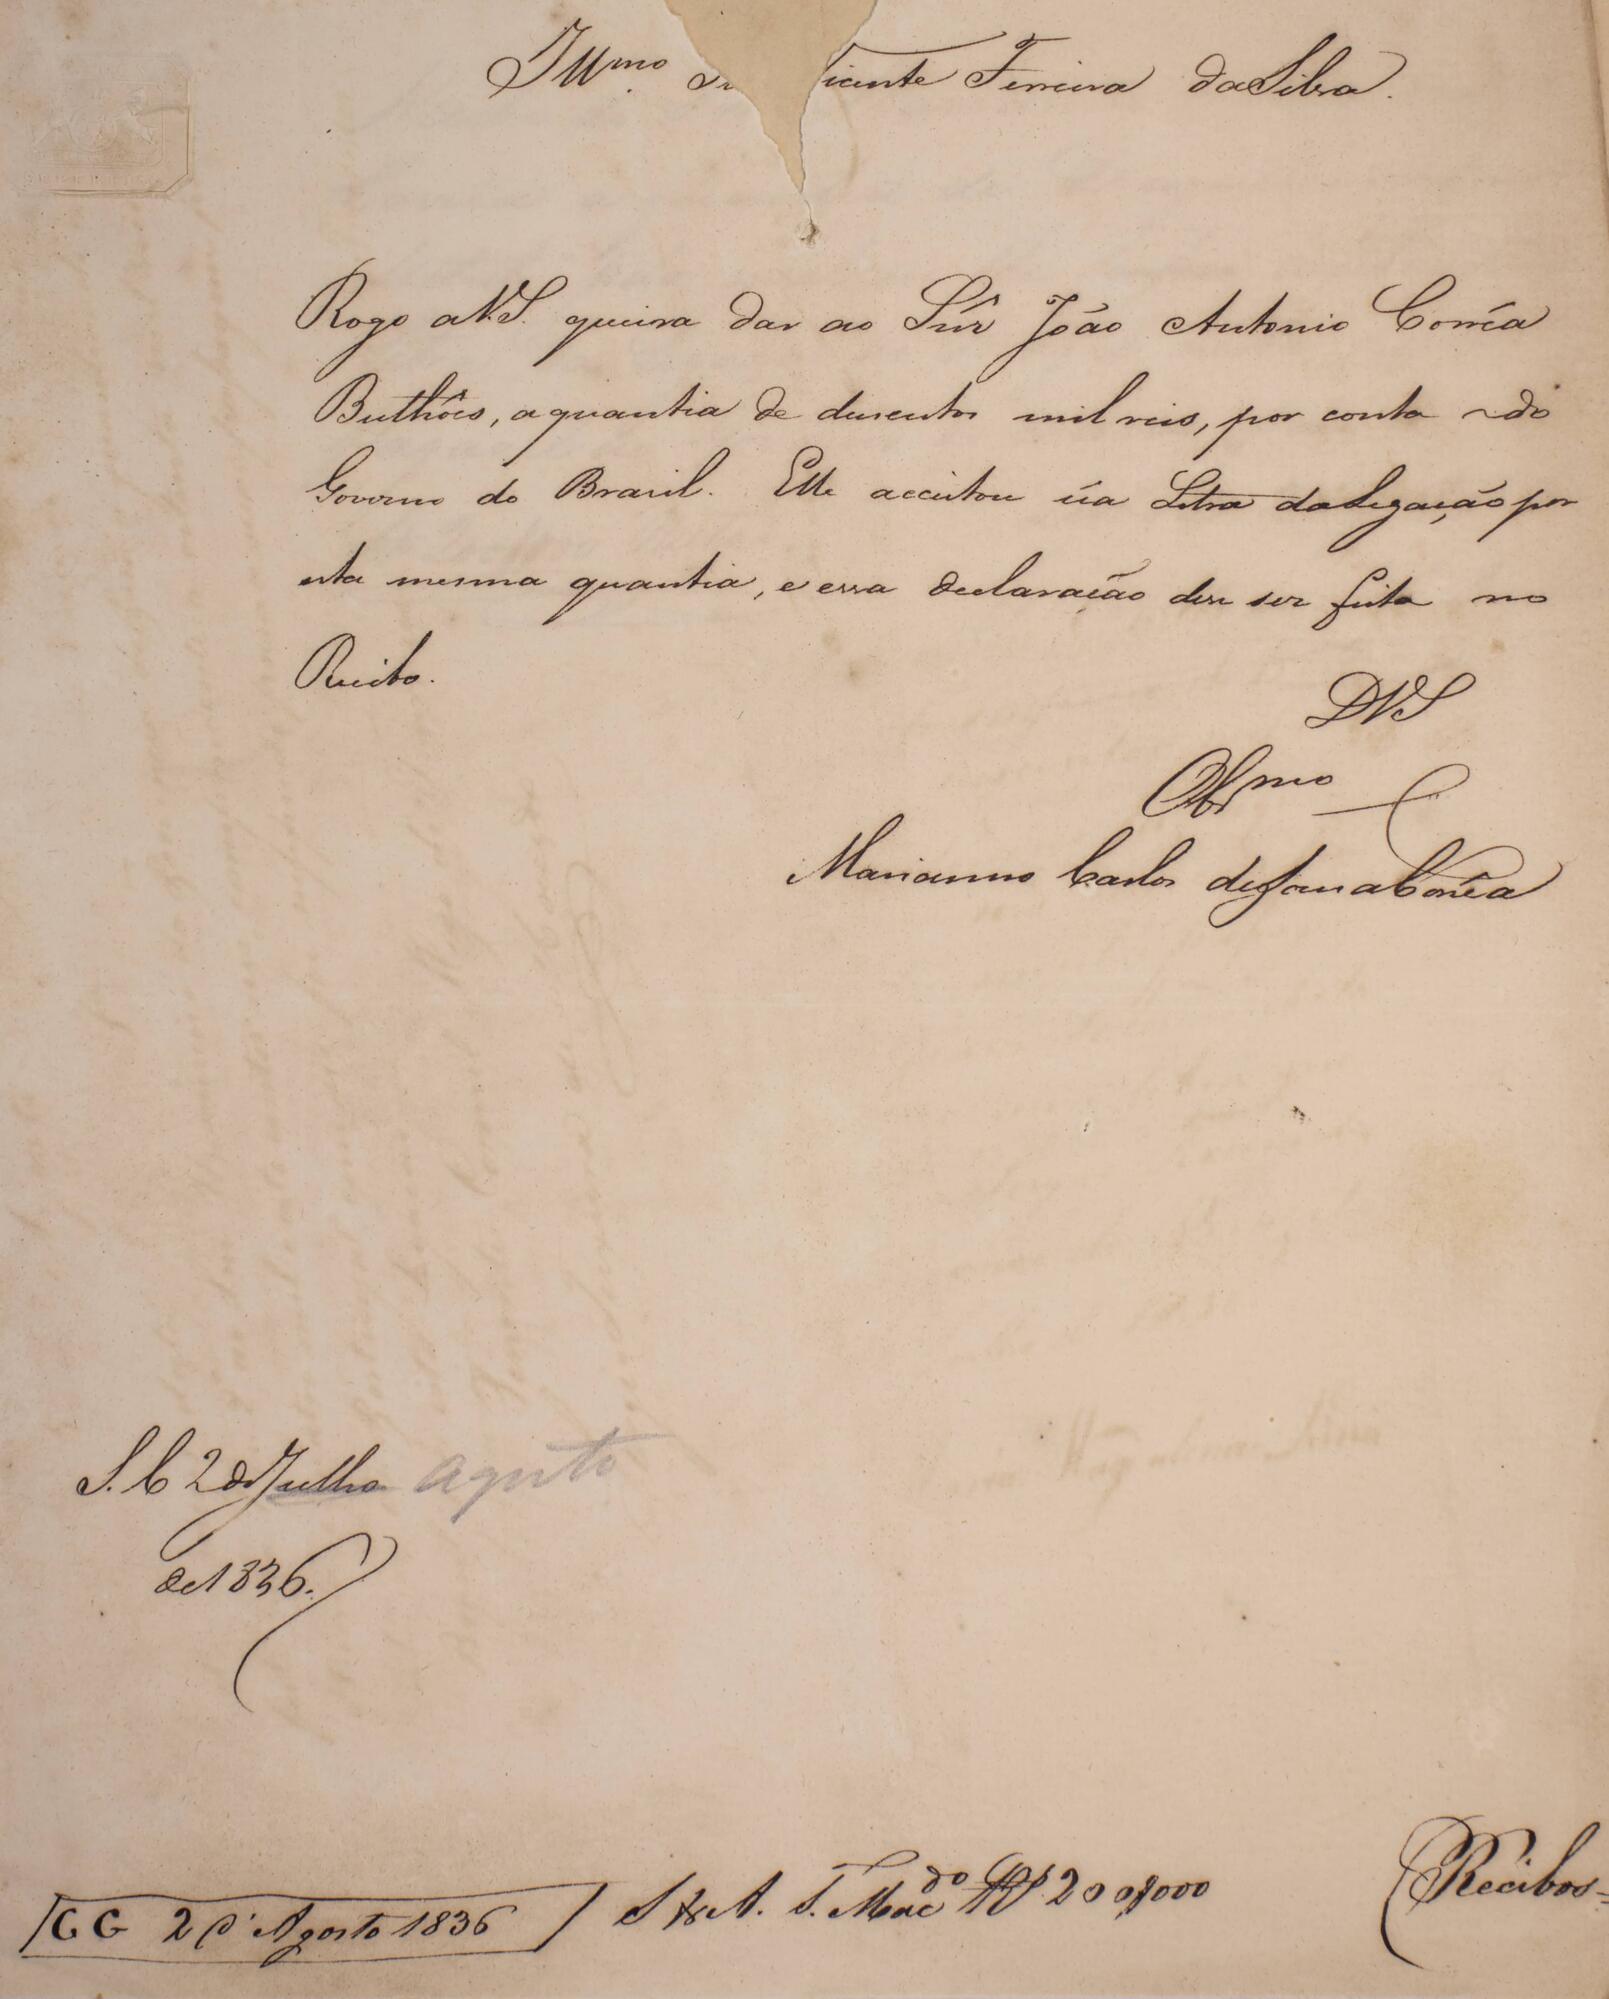 Illmo. Sr. Vicente Ferreira da Silva.
Rogo a V.S. queira dar ao Sñr João Antonio Corrêa
Bulhôes, a quantia de dusentos mil reis, por conta do
Governo do Brasil. Elle acceitou ũa Letra da Legação por
esta mesma quantia, e essa declaração deve ser feita no
Recibo.
DVS
Obrmo
Marianno Carlos de Souza Corrêa
S. C 2 de Julho Agosto
de 1836.
G G 2 d'Agosto 1836
S. T. Macdo Rs 200$000
Recibos=